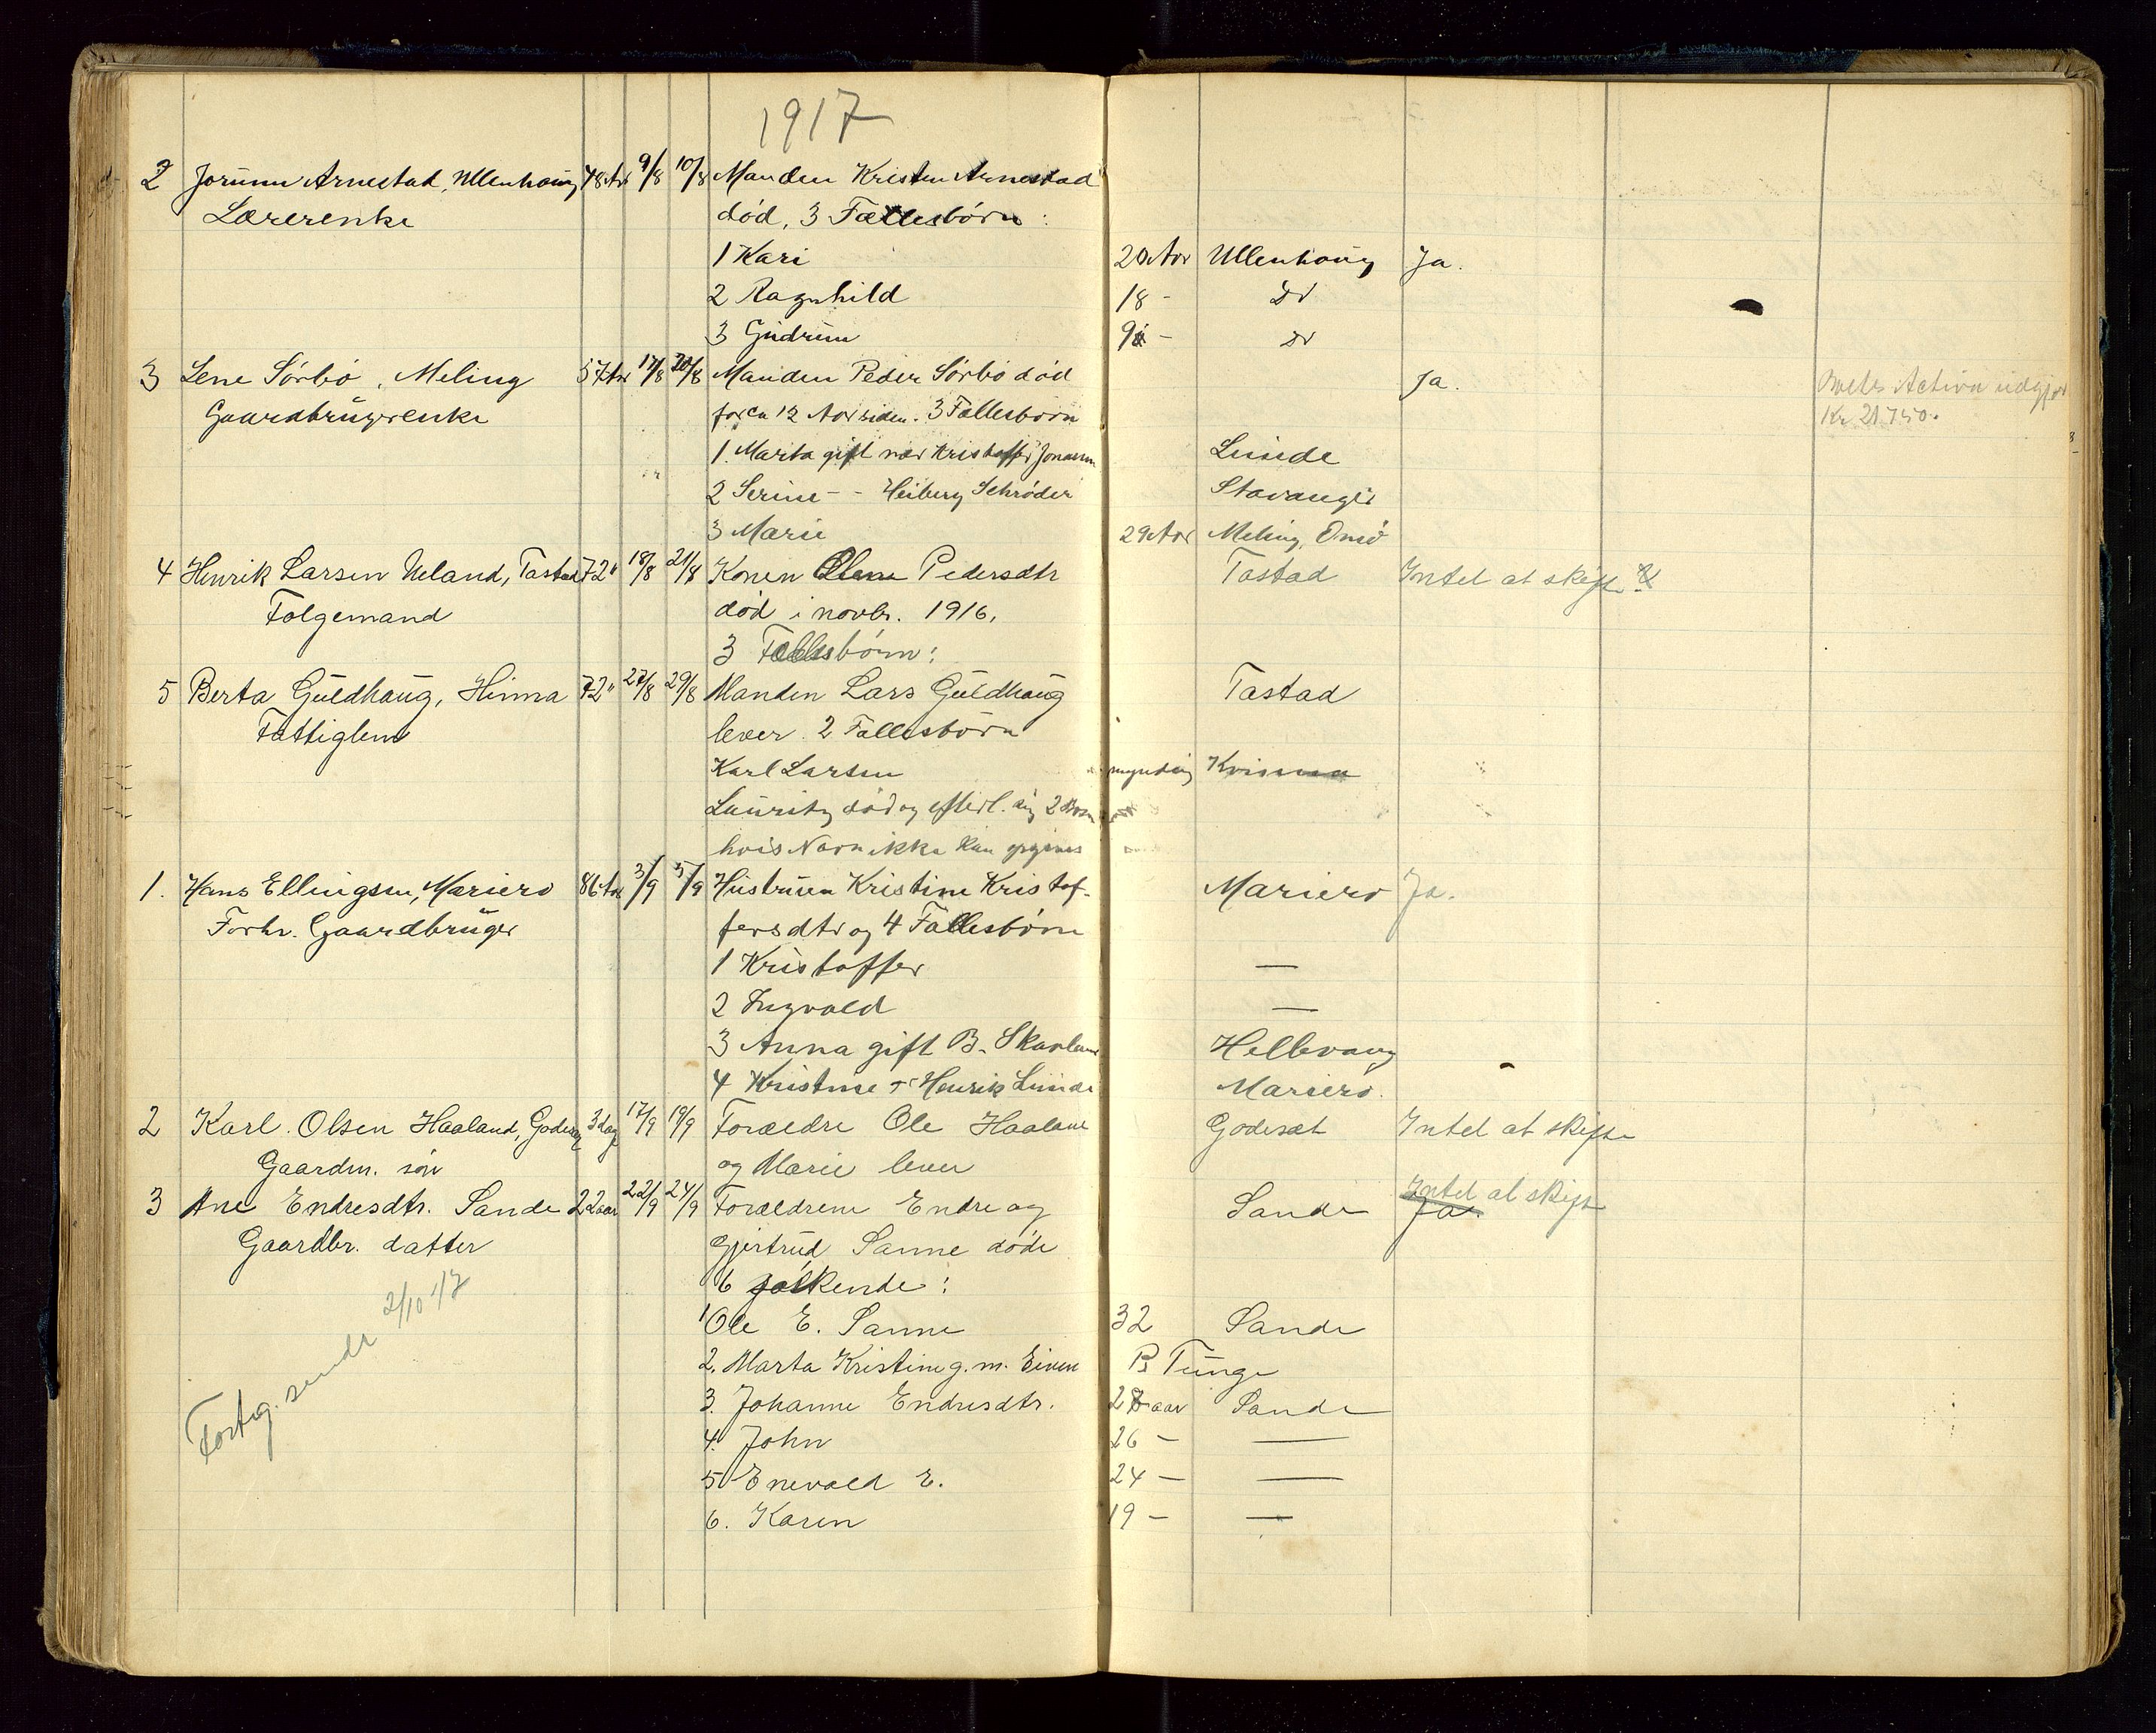 1917
2 Jorunn Arnestad, Ullenhaug 48 Aar 9/8 10/8 Manden Kristen Arnestad
Lærerenke død, 3 Fællesbörn:
1 Kari 20 Aar Ullenhaug Ja.
2 Ragnhild 18 - Do
3 Gudrun 9 - Do
3 Lene Sörbö, Meling 57 Aar 17/8 20/8 Manden Peder Sörbö död Ja. Boets Activa udgjør
Gaardbrugerenke for ca 12 Aar siden. 3 Fællesbörn Kr 21.750.-
1. Marta gift med Kristoffer Jonassen Lunde
2 Serine - - Heiberg Schröder Stavanger
3 Marie 29 Aar Meling,
4 Henrik Larsen Ueland, Tastad 72" 18/8 21/8 Konen Pedersdtr Tastad Intet at skifte
Folgemand död i novbr. 1916.
3 Fællesbörn:
5 Berta Guldhaug, Hinna 72" 27/8 29/8 Manden Lars Guldhaug Tastad
Fattiglem lever. 2 Fællesbörn
Karl Larsen myndig
Lauritz död og efterl. sig 2 Börn
hvis Navn ikke kan opgives
1. Hans Ellingsen, Mariero 86 Aar 3/9 5/9 Hustruen Kristine Kristof- Mariero Ja.
Forhv. Gaardbruger fersdtr og 4 Fællesbörn
1 Kristoffer —
2 Ingvald —
3 Anna gift B. Skavland Hellevaag
4 Kristine - Henrik Lunde Mariero.
2 Karl Olsen Haaland, Godeset 3 dage 17/9 19/9 Foreldre Ole Haaland Godeset Intet at skifte
Gaardm. sön og Marie lever
3 Ane Endresdtr. Sande 22 aar 22/9 24/9 Foreldrene Endre og Sande Intet at skifte
Ja.
Gaardbr. datter Gjertrud Sanne döde
6 sökende:
1 Ole E. Sanne 32 Sande
2. Marta Kristine g. m. Eivin P. Tunge
3. Johanne Endresdtr. 28 aar Sande
4. John 26 - —
5 Enevald E. 24 - —
6. Karen 19 - —
Fortg. sendt 2/10 17